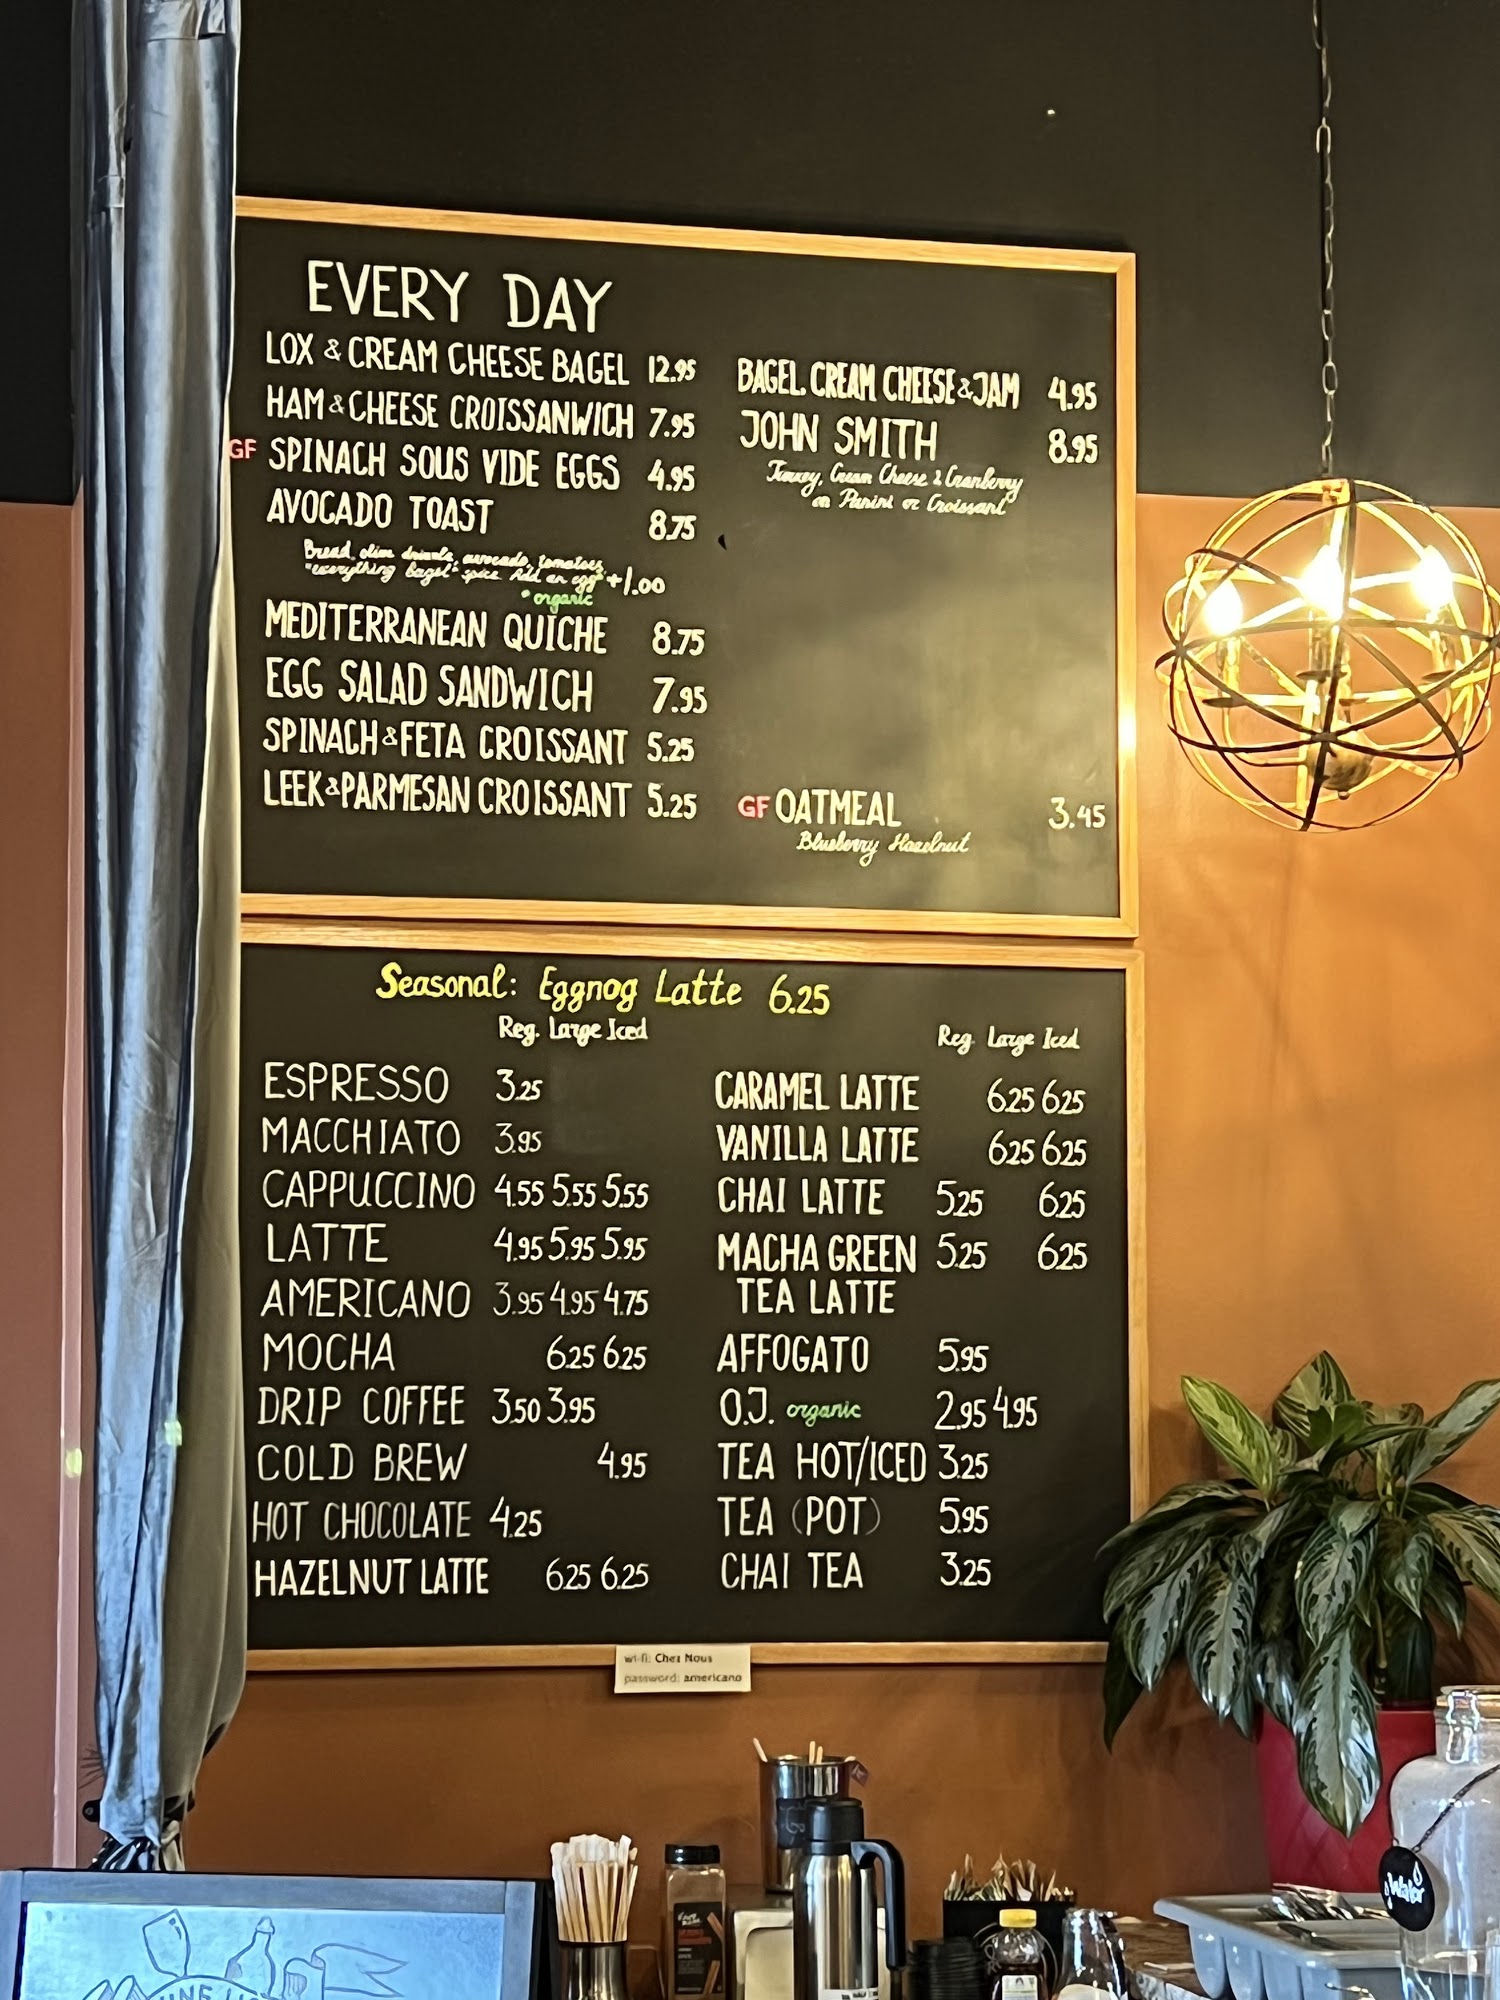 EVERY DAY
LOX & CREAM CHEESE BAGEL 12.95
HAM & CHEESE CROISSANWICH 7.95
GF SPINACH SOUS VIDE EGGS 4.95
AVOCADO TOAST 8.75
Bread, olive drizzle, avocado, tomatoes,
"everything bagel" spice. Add an egg* +1.00
* organic
MEDITERRANEAN QUICHE 8.75
EGG SALAD SANDWICH 7.95
SPINACH & FETA CROISSANT 5.25
LEEK & PARMESAN CROISSANT 5.25
BAGEL, CREAM CHEESE & JAM 4.95
JOHN SMITH 8.95
Turkey, Cream Cheese & Cranberry
on Panini or Croissant
GF OATMEAL 3.45
Blueberry Hazelnut
Seasonal: Eggnog Latte 6.25
Reg. Large Iced
ESPRESSO 3.25
MACCHIATO 3.95
CAPPUCCINO 4.55 5.55 5.55
LATTE 4.95 5.95 5.95
AMERICANO 3.95 4.95 4.75
MOCHA 6.25 6.25
DRIP COFFEE 3.50 3.95
COLD BREW 4.95
HOT CHOCOLATE 4.25
HAZELNUT LATTE 6.25 6.25
Reg. Large Iced
CARAMEL LATTE 6.25 6.25
VANILLA LATTE 6.25 6.25
CHAI LATTE 5.25 6.25
MACHA GREEN 5.25 6.25
TEA LATTE
AFFOGATO 5.95
O.J. organic 2.95 4.95
TEA HOT/ICED 3.25
TEA (POT) 5.95
CHAI TEA 3.25
wi-fi: Chez Nous
password: americano
Water